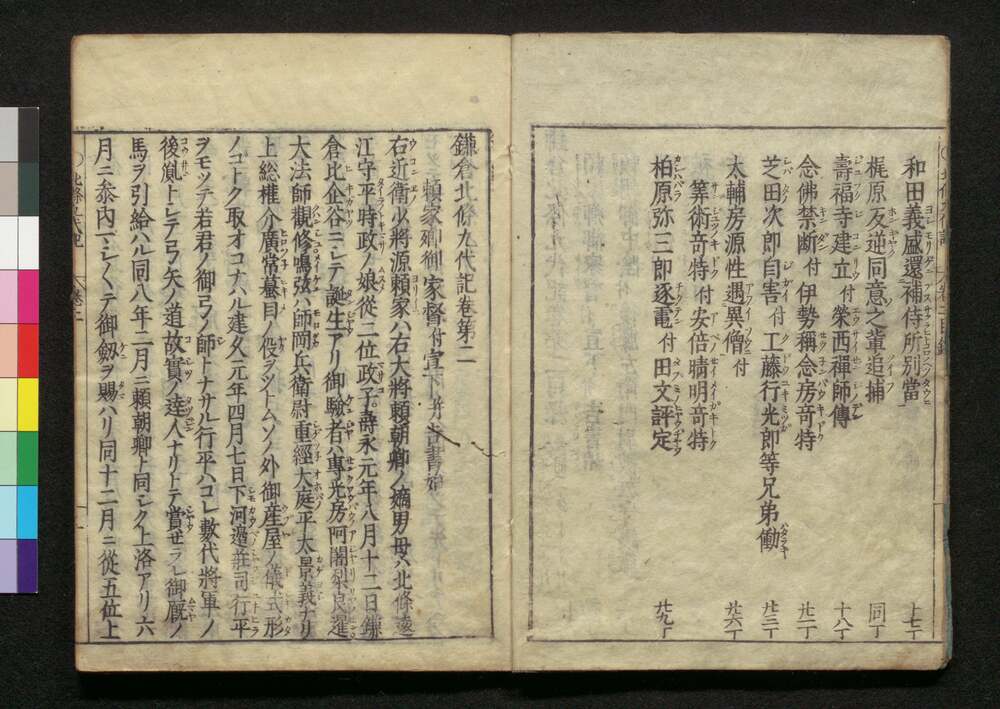 和田義盛還補侍所別當 十七丁
梶原反逆同意之輩追捕 同丁
壽福寺建立付榮西禪師傳 十八丁
念佛禁断付伊勢稱念房奇特 廿一丁
芝田次郎自害付工藤行光郎等兄弟働 廿三丁
太輔房源性遇異僧付
筭術奇特付安倍晴明奇特 廿六丁
柏原弥三郎逐電付田文評定 廿九丁
鎌倉北條九代記巻第二
頼家卿御家督付宣下并吉書始
右近衛少將源頼家ハ右大將頼朝卿ノ嫡男母ハ北條遠
江守平時政ノ娘從二位政子ナリ壽永元年八月十二日鎌
倉比企谷ニシテ誕生アリ御驗者ハ専光房阿闍梨良暹
大法師觀修鳴弦ハ師岡兵衛尉重經大庭平太景義ナリ
上総權介廣常蟇目ノ役ヲツトムソノ外御産屋ノ儀式形
ノコトク取オコナハル建久元年四月七日下河邉荘司行平
ヲモツテ若君ノ御弓ノ師トナサル行平ハコレ數代將軍ノ
後胤トシテ弓矢ノ道故實ノ達人ナリトテ賞せラレ御厩ノ
馬ヲ引給ハル同八年二月ニ頼朝卿ト同シク上洛アリ六
月ニ参内マシ〱テ御劔ヲ賜ハリ同十二月ニ從五位上